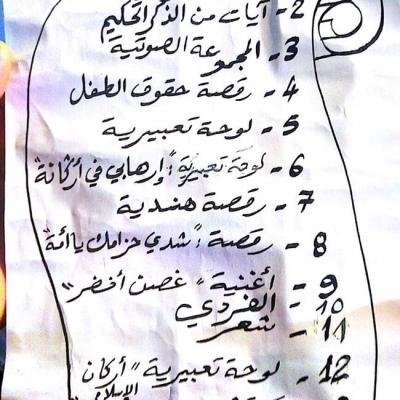 2- آيات من الذكر الحكيم
3- المجموعة الصوتية
4- رقصة حقوق الطفل
5- لوحة تعبيرية
6- لوحة تعبيرية: "إرهابي في أركانة"
7- رقصة هندية
8- رقصة: "شدي حزامك يا أمة"
9- أغنية "غصن أخضر"
10- الفردي
11- شعر
12- لوحة تعبيرية "أركان
الإسلام"